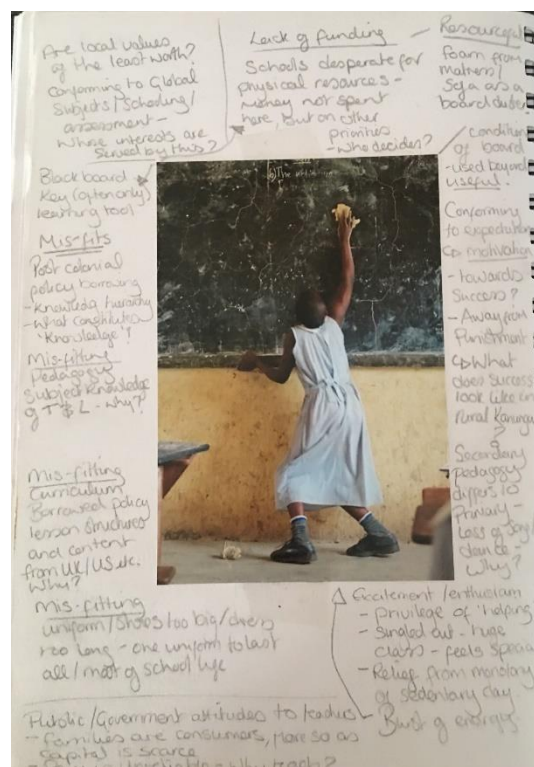 Are local values
of the least worth?
Conforming to Global
Subjects/Schooling/
assessment -
Whose interests are
served by this?
Lack of funding
Schools desperate for
physical resources -
money not spent
here, but on other
priorities
- Who decides?
Resourceful
foam from
matress/
Sofa as a
board duster
Condition
of board
- used beyond
useful!
Conforming
to expectation
motivation
- towards
Success?
- Away from
Punishment
What
does success
look like in
rural Kanungu
?
Secondary
Pedagogy
differs to
Primary -
Loss of song/
dance -
Why?
Blackboard
Key (often only)
learning tool
Mis-fits
Post colonial
policy borrowing
- Knowledge hierarchy
- What constitutes
'Knowledge'?
Mis-fitting
Pedagogy
Subject knowledge
of T & L - Why?
Mis-fitting
Curriculum
Borrowed policy
lesson structures
and content
from UK/US etc.
Why?
Mis-fitting
uniform/shoes too big/dress
too long - one uniform to last
all/most of school life
Excitement/enthusiasm
- privilege of 'helping'
- Singled out - huge
class - feels special
- Relief from monotony
of sedentary day
Burst of energy
Public/Government attitudes to teachers
- Families are consumers, more so as
capital is scarce
why teach?